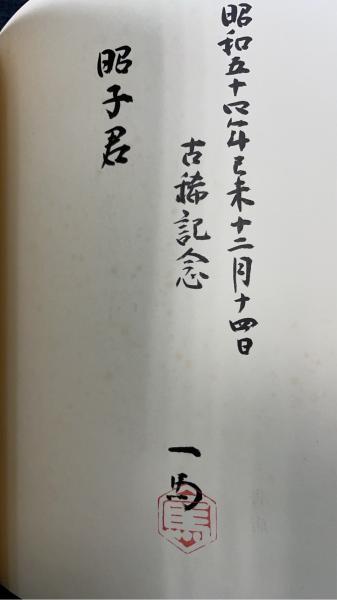 昭和五十四年己未十二月十四日
古稀記念
昭子君
一馬
馬